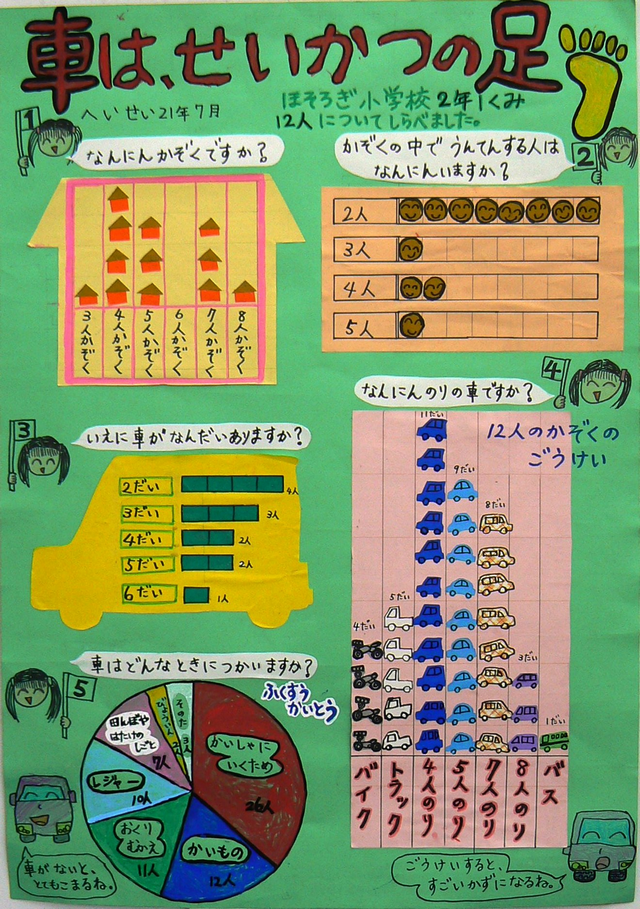 車は、せいかつの足
へいせい21年7月
ほそろぎ小学校2年1くみ
12人についてしらべました。
1
なんにんかぞくですか?
3人かぞく
4人かぞく
5人かぞく
6人かぞく
7人かぞく
8人かぞく
2
かぞくの中でうんてんする人は
なんにんいますか?
2人
3人
4人
5人
3
いえに車がなんだいありますか?
2だい 4人
3だい 3人
4だい 2人
5だい 2人
6だい 1人
4
なんにんのりの車ですか?
12人のかぞくの
ごうけい
4だい
5だい
11だい
9だい
8だい
3だい
1だい
バイク
トラック
4人のり
5人のり
7人のり
8人のり
バス
5
車はどんなときにつかいますか?
ふくすう
かいとう
かいしゃに
いくため
26人
かいもの
12人
おくり
むかえ
11人
レジャー
10人
田んぼや
はたけの
しごと
7人
びょういん
2人
そのた
3人
車がないと、
とてもこまるね。
ごうけいすると、
すごいかずになるね。